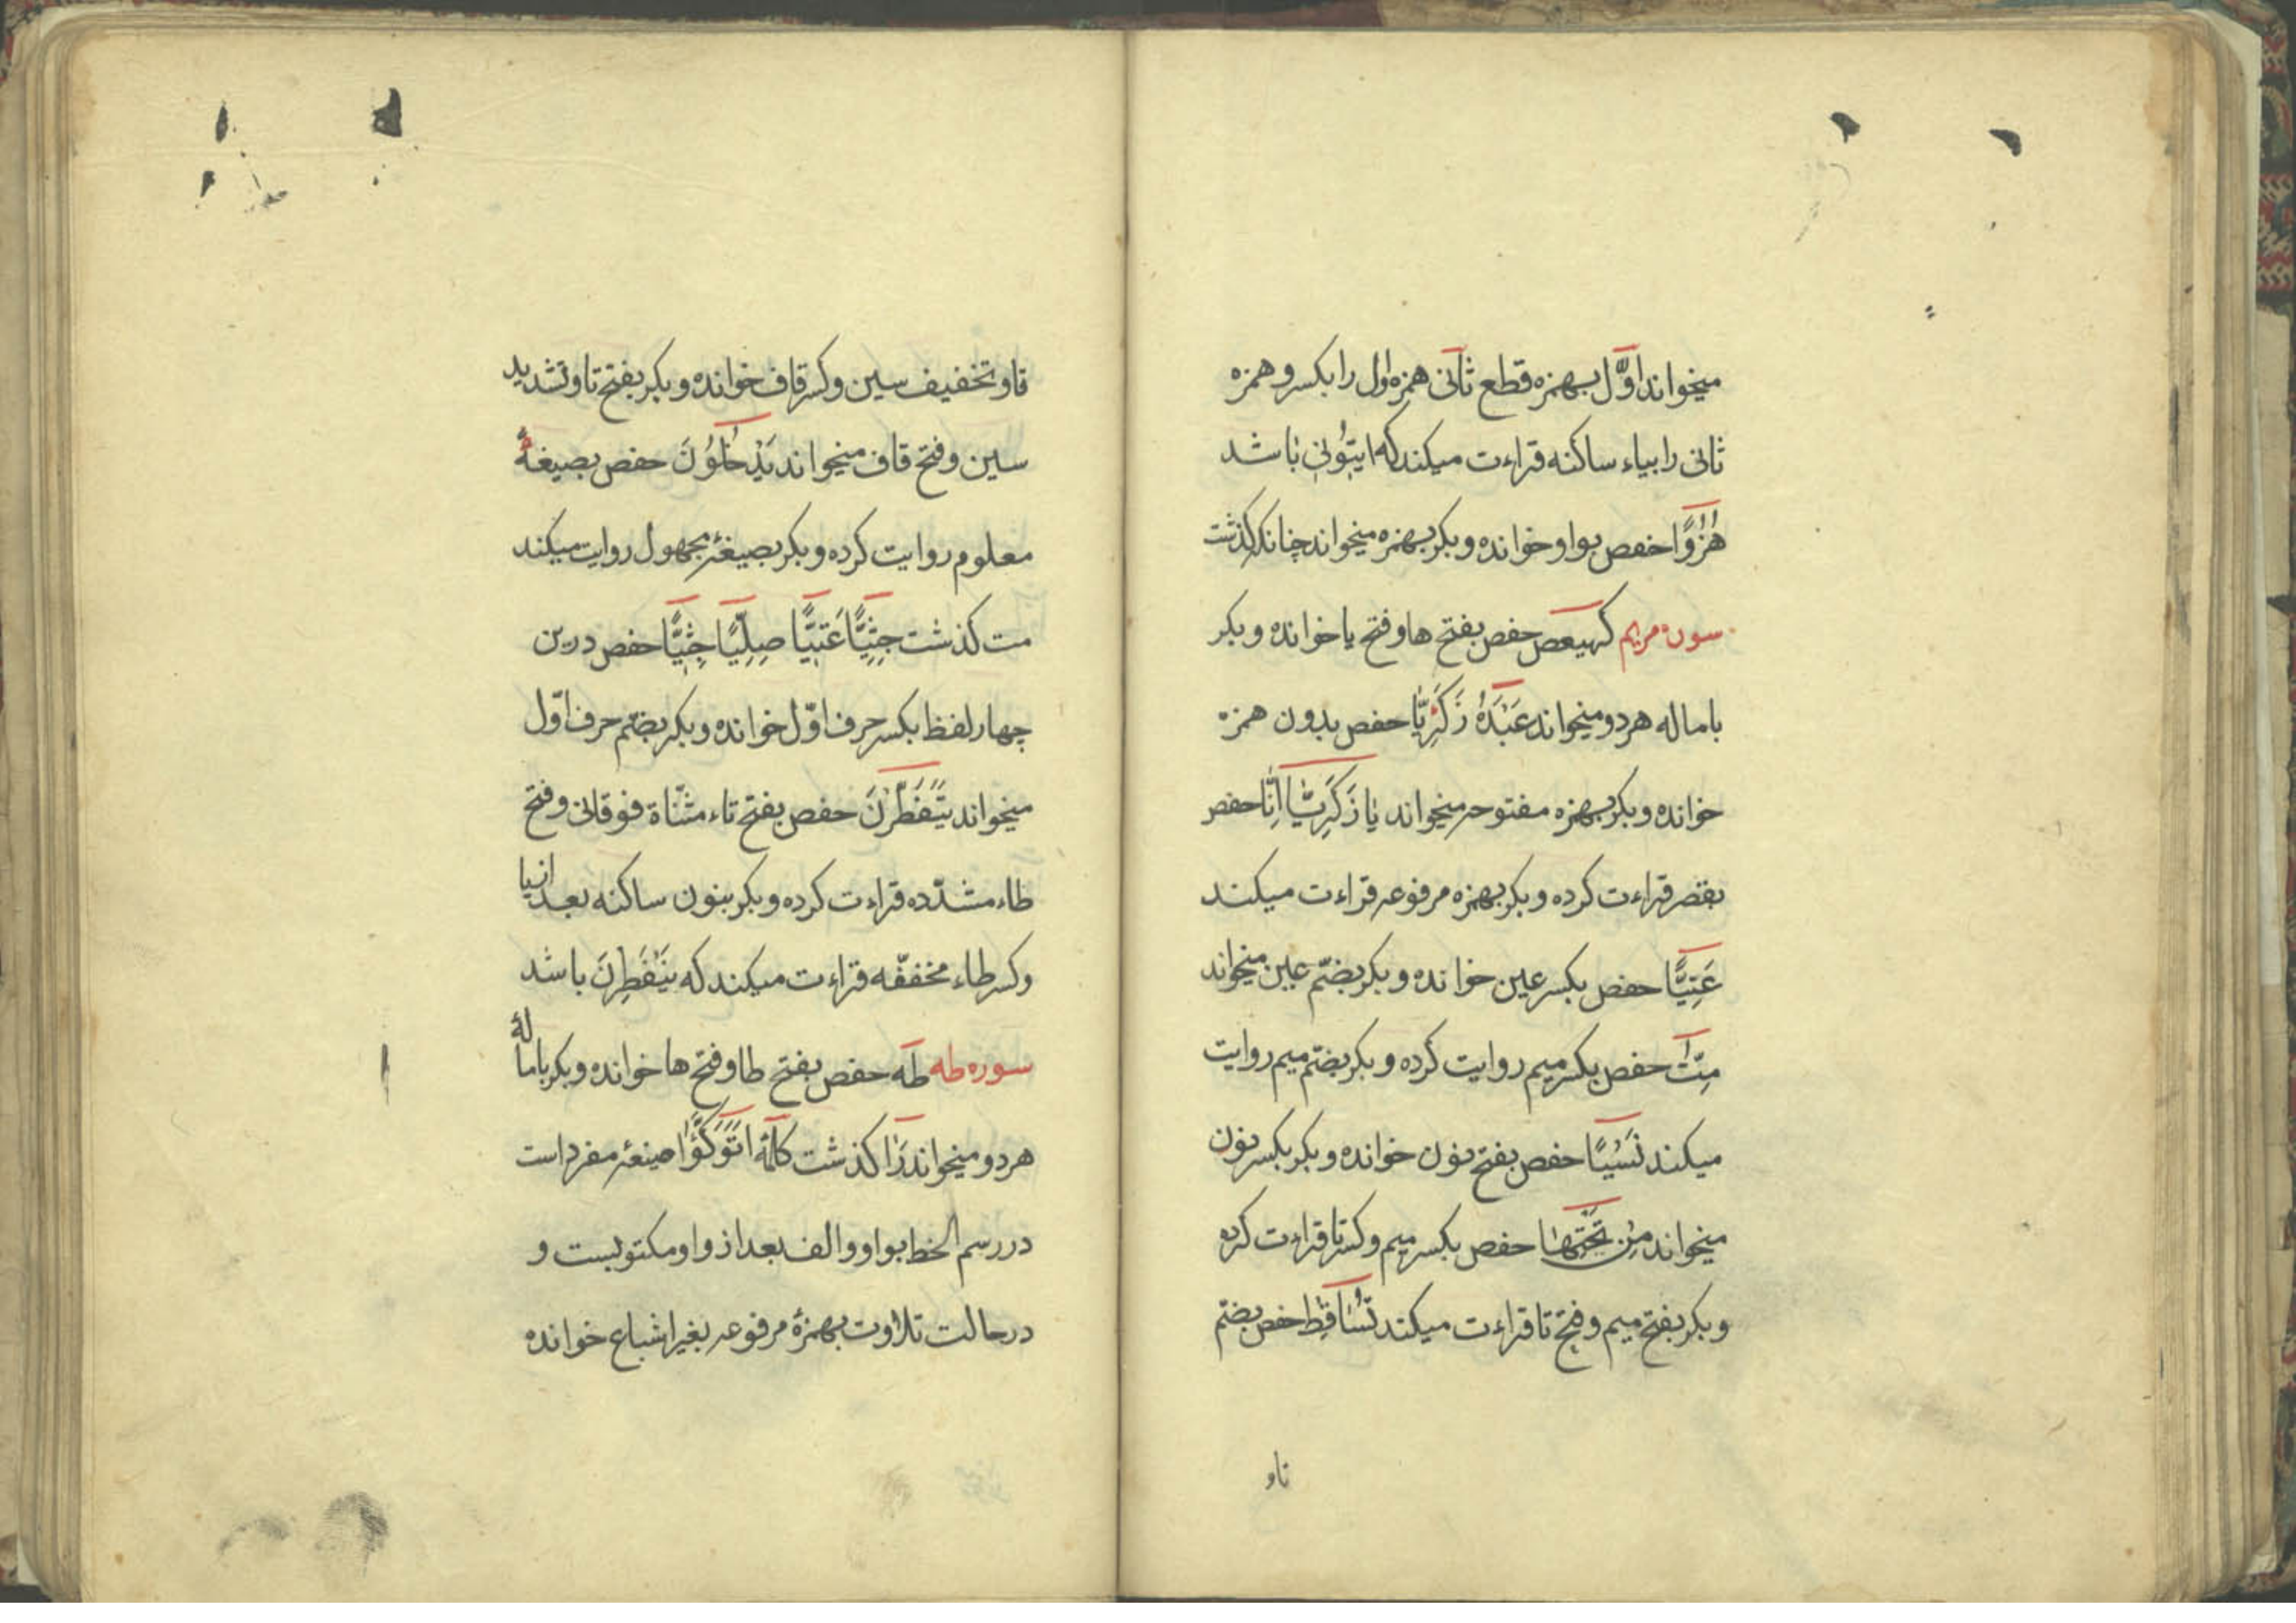 میخواند اوّل بهمزه قطع ثانی همزه اول را بکسر و همزه
ثانی را بیاء ساکنه قراءت میکند که ایتُونی باشد
هُزُوًا حفص بواو خوانده و بکر بهمزه میخواند چنانکه گذشت
سوره مریم کهیعص حفص بفتح ها و فتح یا خوانده و بکر
باماله هر دو میخواند عَبْدَهُ زَکَرِیَّا حفص بدون همزه
خوانده و بکر بهمزه مفتوحه میخواند یا زَکَرِیَّا اِنَّا حفص
بقصر قراءت کرده و بکر بهمزه مرفوعه قراءت میکند
عَتِیًّا حفص بکسر عین خوانده و بکر بضمّ عین میخواند
مِتّ حفص بکسر میم روایت کرده و بکر بضمّ میم روایت
میکند نَسْیًا حفص بفتح نون خوانده و بکر بکسر نون
میخواند مِنْ تَحْتِهَا حفص بکسر میم و کسر تا قراءت کرده
و بکر بفتح میم و فتح تا قراءت میکند تُسَاقِط حفص بضمّ
تاو
تا و تخفیف سین و کسر قاف خوانده و بکر بفتح تا و تشدید
سین و فتح قاف میخواند یَدْخُلُونَ حفص بصیغهٔ
معلوم روایت کرده و بکر بصیغهٔ مجهول روایت میکند
مت کذشت جِثِیًّا عَتِیًّا صِلِیًّا جِثِیًّا حفص درین
چهار لفظ بکسر حرف اوّل خوانده و بکر بضمّ حرف اوّل
میخواند یَتَفَطَّرْنَ حفص بفتح تاء مثنّاة فوقانی و فتح
طاء مشدّده قراءت کرده و بکر بنون ساکنه بعد از یا
و کسر طاء مخففّه قراءت میکند که یَنْفَطِرْنَ باشد
سوره طه طه حفص بفتح طا و فتح ها خوانده و بکر بامالهٔ
هر دو میخواند رَاٰ کذشت کلمهٔ اَتَوَکَّؤُا صیغهٔ مفرد است
در رسم الخط بواو و الف بعد از واو مکتوبست و
در حالت تلاوت بهمزهٔ مرفوعه بغیر اشباع خوانده